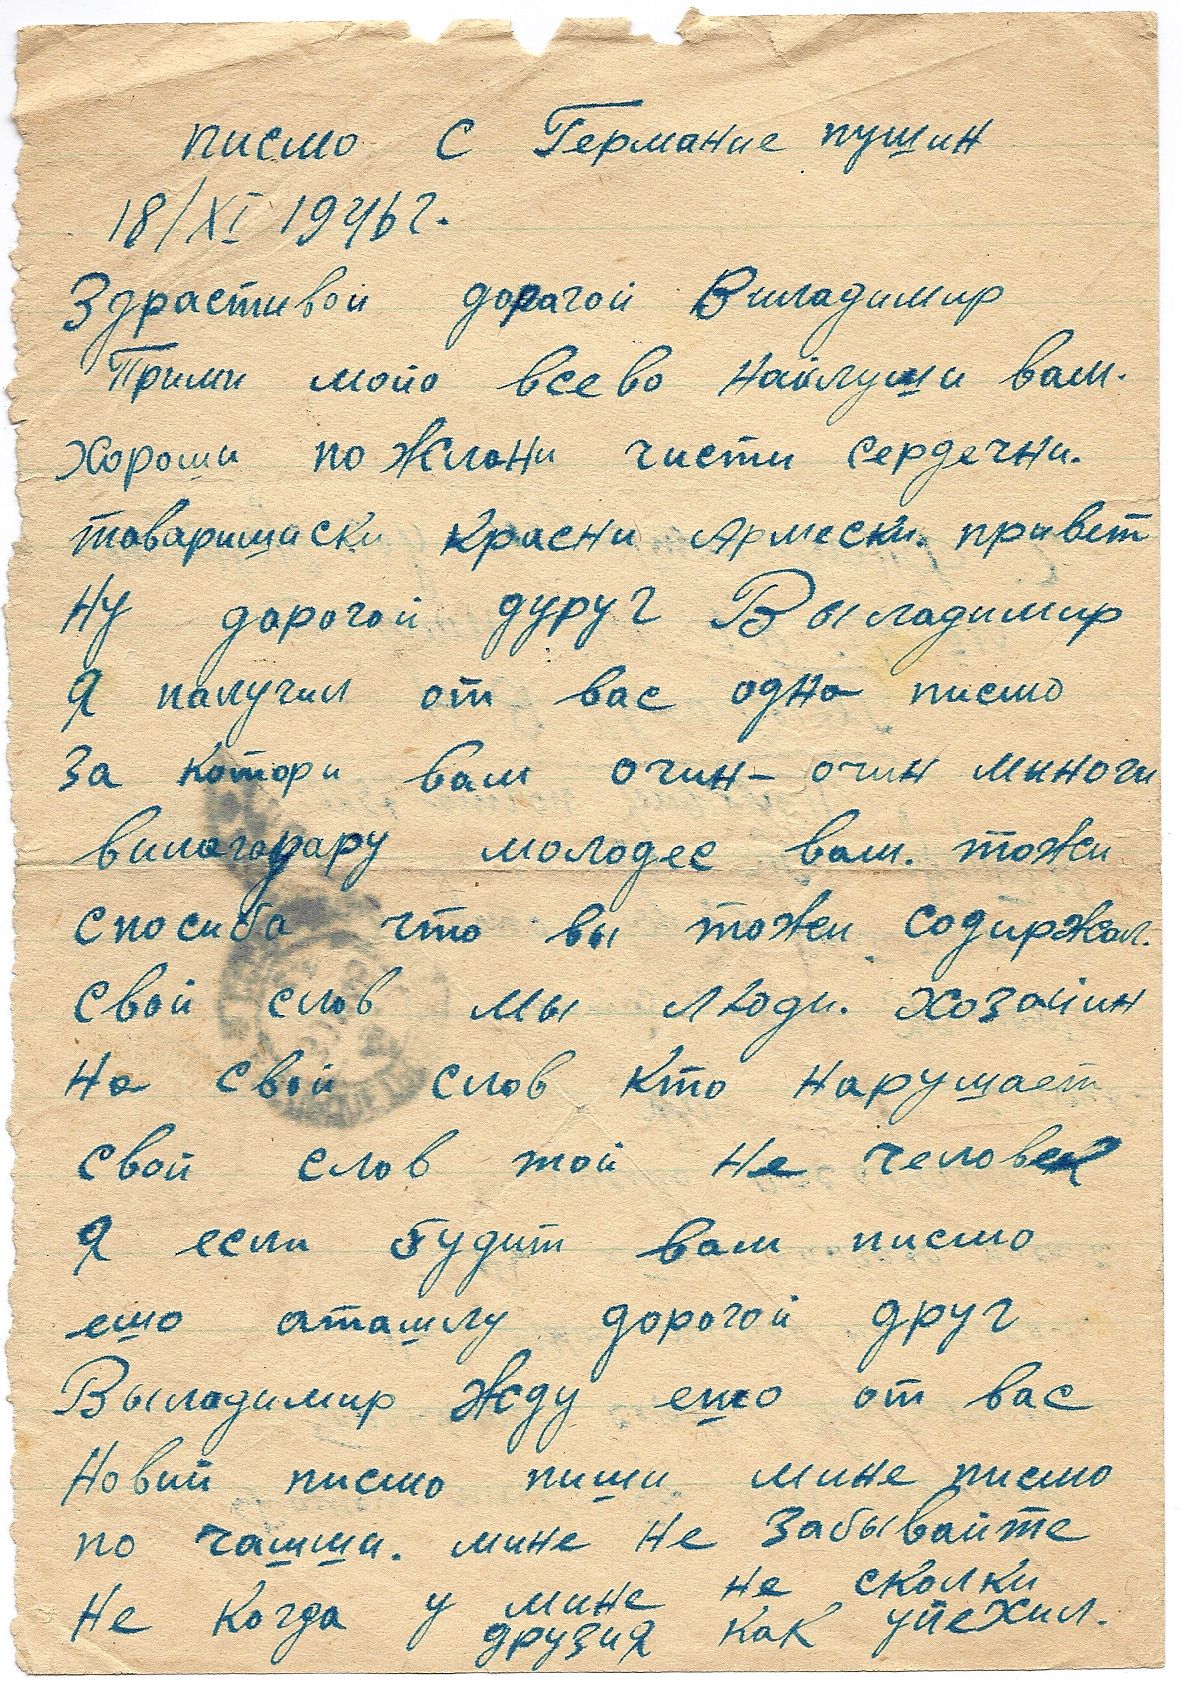 писмо с Германие пушин
18/XI 1946 г.
Здрастивой дорагой Виладимир
Прими мойо всево найлуши вам.
хороши пожлани чисти сердечни.
товаришиски красни Армески. привет
ну дорогой дуруг Выладимир
Я палучил от вас одна писмо
за котори вам очин-очин миноги
молодес вам. тожи
спосиба что вы тожи содиржал.
свой слов мы люди. хозаийн
на свой слов кто нарушает
свой слов той не человек
Я если будит вам писмо
ешо аташлу дорогой друг
Выладимир жду ешо от вас
новий писмо пиши мине писмо
по чашши. мине не забывайте
не когда у мине не сколки
друзия как упехил.